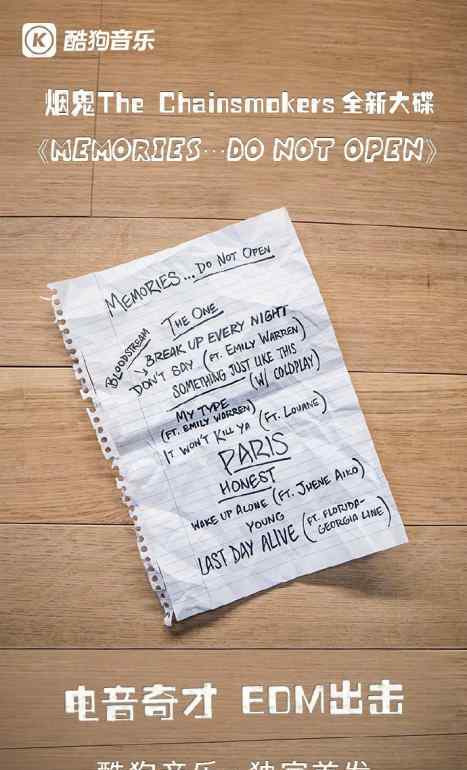 酷狗音乐
烟鬼The Chainsmokers 全新大碟
《MEMORIES···DO NOT OPEN》
MEMORIES...DO NOT OPEN
THE ONE
BLOODSTREAM
BREAK UP EVERY NIGHT
DON'T SAY (FT. EMILY WARREN)
SOMETHING JUST LIKE THIS
(W/ COLDPLAY)
MY TYPE
(FT. EMILY WARREN)
IT WON'T KILL YA (FT. LOUANE)
PARIS
HONEST
WAKE UP ALONE (FT. JHENE AIKO)
YOUNG
LAST DAY ALIVE (FT. FLORIDA-
GEORGIA LINE)
电音奇才 EDM出击
酷狗音乐 独家首发